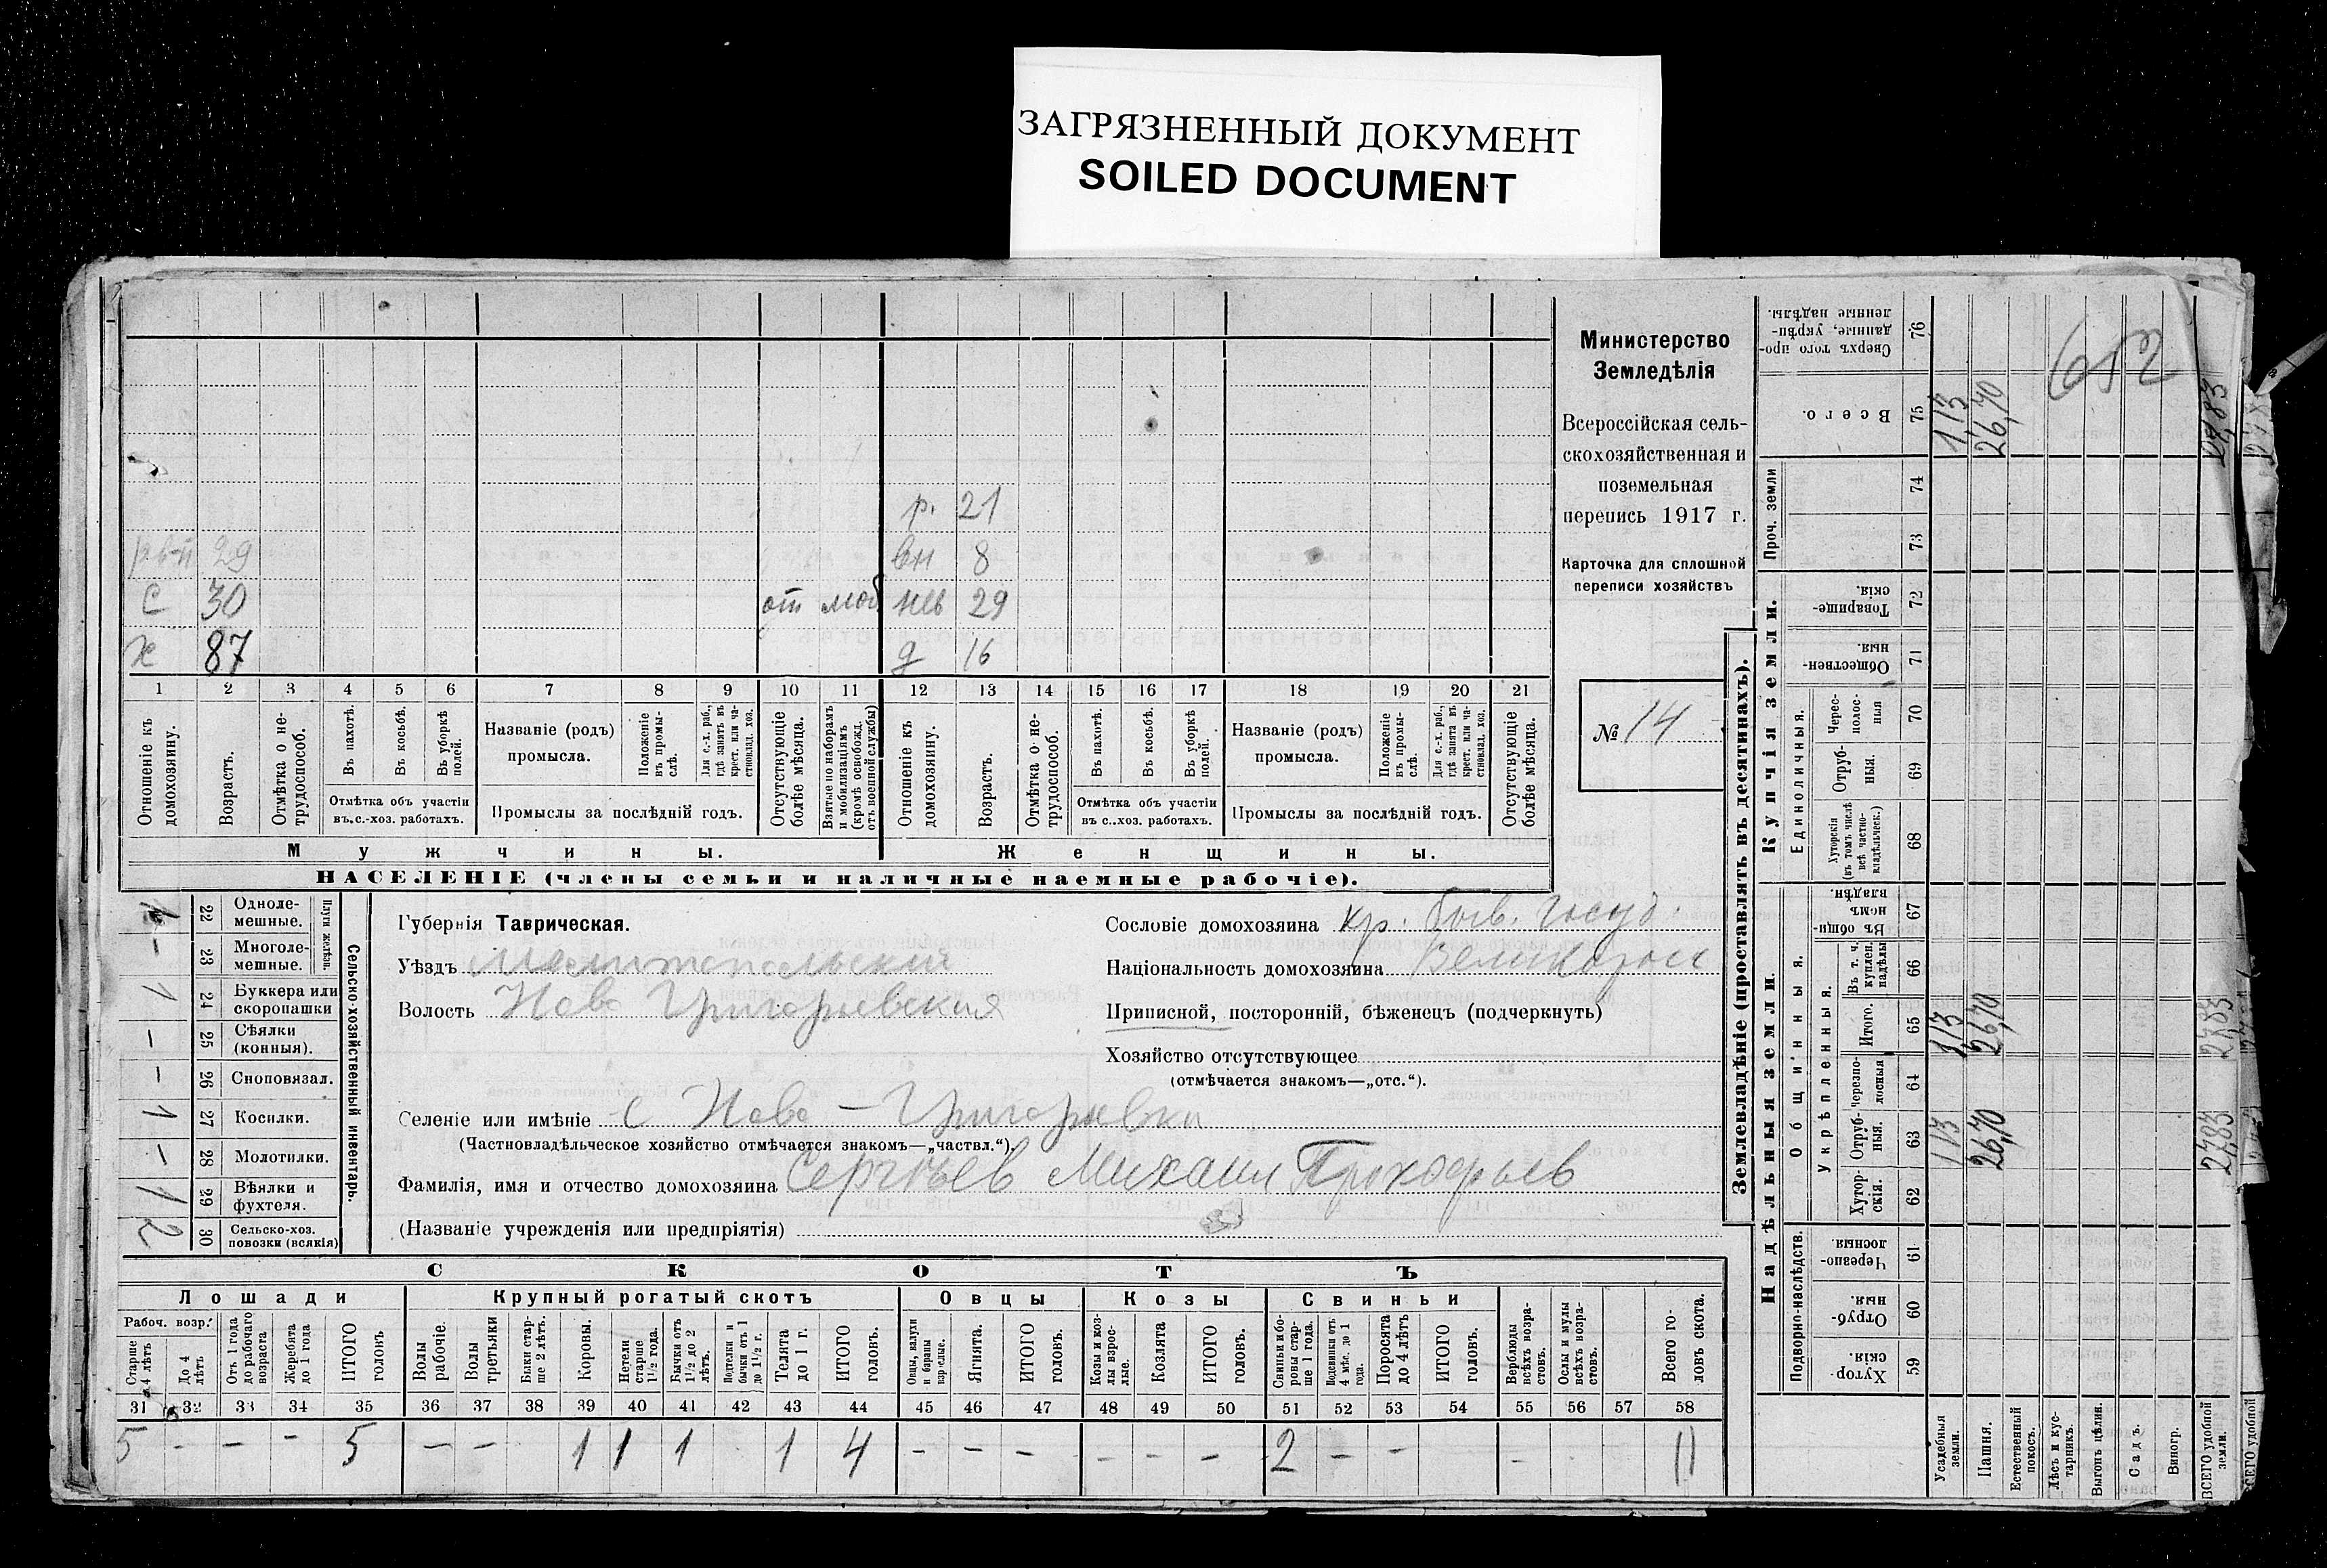 ЗАГРЯЗНЕННЫЙ ДОКУМЕНТ
SOILED DOCUMENT
р. 21
29 вн 8
С 30 от моб нев 29
х 87 д 16
1 2 3 4 5 6 7 8 9 10 11 12 13 14 15 16 17 18 19 20 21
Отношеніе къ домохозяину.
Возрастъ.
Отмѣтка о нетрудоспособ.
Въ пахотѣ.
Въ косьбѣ.
Въ уборкѣ полей.
Отмѣтка объ участіи
въ с.-хоз. работахъ.
Названіе (родъ)
промысла.
Положеніе въ промыслѣ.
Для с.-х. раб., гдѣ занятъ въ крест. или частновлад. хоз.
Промыслы за послѣдній годъ.
Отсутствующіе болѣе мѣсяца.
Взятые по наборамъ и мобилизаціямъ (кромѣ освобожд. отъ военной службы)
Отношеніе къ домохозяину.
Возрастъ.
Отмѣтка о нетрудоспособ.
Въ пахотѣ.
Въ косьбѣ.
Въ уборкѣ полей.
Отмѣтка объ участіи
въ с..хоз. работахъ.
Названіе (родъ)
промысла.
Положеніе въ промыслѣ.
Для с.-х. раб., гдѣ занята въ крест. или частновлад. хоз.
Промыслы за послѣдній годъ.
Отсутствующіе болѣе мѣсяца.
Мужчины.
Женщины.
НАСЕЛЕНІЕ (члены семьи и наличные наемные рабочіе).
Министерство
Земледѣлія
Всероссійская сель-
скохозяйственная и
поземельная
перепись 1917 г.
Карточка для сплошной
переписи хозяйствъ
№ 14
Сельско-хозяйственный инвентарь.
Плуги желѣзн.
1 22 Одноле-
мешные.
– 23 Многоле-
мешные.
1 24 Буккера или
скоропашки
– 25 Сѣялки
(конныя).
– 26 Сноповязал.
1 27 Косилки.
– 28 Молотилки.
1 29 Вѣялки и
фухтеля.
2 30 Сельско-хоз.
повозки (всякія)
Губернія Таврическая.
Уѣздъ Мелитопольский
Волость Ново Григорьевская
Селеніе или имѣніе с Ново-Григорьевка
(Частновладѣльческое хозяйство отмѣчается знакомъ—„частвл.“)
Фамилія, имя и отчество домохозяина Сергѣев Михаил Прокофьев
(Названіе учрежденія или предпріятія)
Сословіе домохозяина кр. быв. госуд.
Національность домохозяина Великоросс
Приписной, посторонній, бѣженецъ (подчеркнуть)
Хозяйство отсутствующее
(отмѣчается знакомъ—„отс.“).
СКОТЪ
Лошади
Крупный рогатый скотъ
Овцы
Козы
Свиньи
Рабоч. возр.
Старше 4 лѣтъ
До 4 лѣтъ
Отъ 1 года до рабочаго возраста
Жеребята до 1 года
ИТОГО головъ
Волы рабочіе.
Волы третьяки
Быки старше 2 лѣтъ.
Коровы.
Нетели старше 1 1/2 года.
Бычки отъ 1 1/2 до 2 лѣтъ.
Подтелки и бычки отъ 1 до 1 1/2 г.
Телята до 1 г.
ИТОГО головъ.
Овцы, валухи и бараны взрослые.
Ягнята.
ИТОГО головъ.
Козы и козлы взрослые.
Козлята
ИТОГО головъ.
Свиньи и боровы старше 1 года.
Подсвинки отъ 4 мѣс. до 1 года.
Поросята до 4 лѣтъ
ИТОГО головъ.
Верблюды всѣхъ возрастовъ.
Ослы и мулы всѣхъ возрастовъ.
Всего головъ скота.
31 32 33 34 35 36 37 38 39 40 41 42 43 44 45 46 47 48 49 50 51 52 53 54 55 56 57 58
5 – – – 5 – – 1 1 1 1 4 – – – – – – 2 – – – 11
Землевладѣніе (проставлять въ десятинахъ).
Купчія земли.
Надѣльныя земли.
Сверхъ того проданные, укрѣпленные надѣлы. 76
Всего. 75 1,13 26,70 27,83
652
Проч. земли
74
73
Товарищескія. 72
Общественныя 71
Единоличныя.
Чересполосныя 70
Отрубныя. 69
Хуторскія (въ томъ числѣ всѣ частновладѣльческ.) 68
Общинныя.
Въ общинномъ владѣн. 67
Укрѣпленныя.
Въ т. ч. куплен. надѣлы 66
Итого. 65 1,13 26,70 27,83
Черезполосныя 64
Отрубныя. 63 1,13 26,70 27,83
Хуторскія. 62
Подворно-наслѣдств.
Черезполосныя. 61
Отрубныя. 60
Хуторскія 59
Усадебныя земли.
Пашня.
Естественный покосъ.
Лѣсъ и кустарникъ.
Выгонъ цѣлин.
Садъ.
Виногр.
ВСЕГО удобной земли.
ВСЕГО удобной